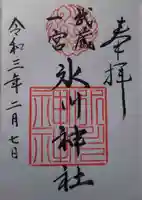 奉拝
武蔵
一宮
氷川神社
令和三年二月七日